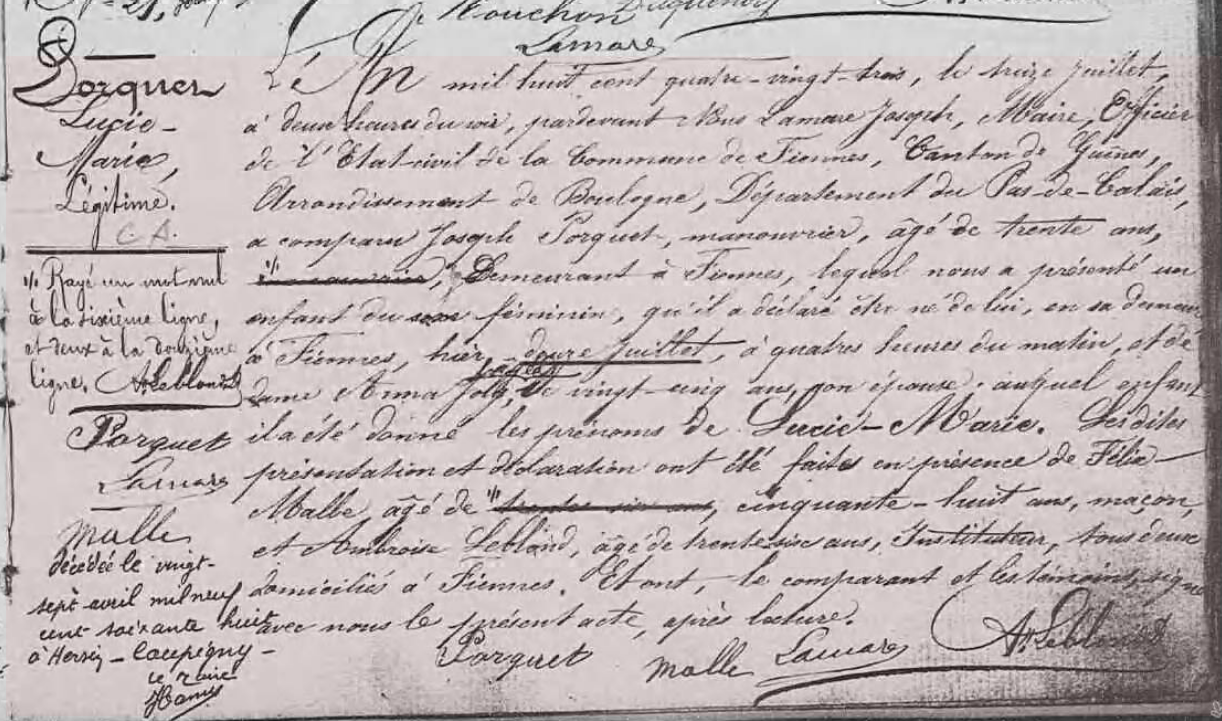 Houchon
Lamare
Porquet
Lucie-
Marie,
Légitime.
C A.
L'An mil huit cent quatre-vingt-trois, le treize juillet,
à deux heures du soir, pardevant Nous Lamare Joseph, Maire, Officier
de l'Etat-civil de la Commune de Fiennes, Canton de Guînes,
Arrondissement de Boulogne, Département du Pas-de-Calais,
a comparu Joseph Porquet, manouvrier, âgé de trente ans,
demeurant à Fiennes, lequel nous a présenté un
enfant du sexe féminin, qu'il a déclaré être né de lui, en sa demeure
à Fiennes, hier, douze juillet, à quatres heures du matin, et de
Dame Anna Joly, âgée de vingt-cinq ans, son épouse. auquel enfant
il a été donné les prénoms de Lucie-Marie. Les dites
présentation et déclaration ont été faites en présence de Félix
Malle, âgé de trente six ans, cinquante-huit ans, maçon,
et Ambroise Leblond, âgé de trente-six ans, Instituteur, tous deux
domiciliés à Fiennes. Et ont, le comparant et les témoins, signé
avec nous le présent acte, après lecture.
Porquet Malle Lamare A. Leblond
Rayé un mot nul
à la sixième ligne,
et deux à la douzième
ligne. A. Leblond
Porquet
Lamare
Malle
décédée le vingt-
sept avril mil neuf
cent soixante huit
à Hersin-Coupigny-
le Maire